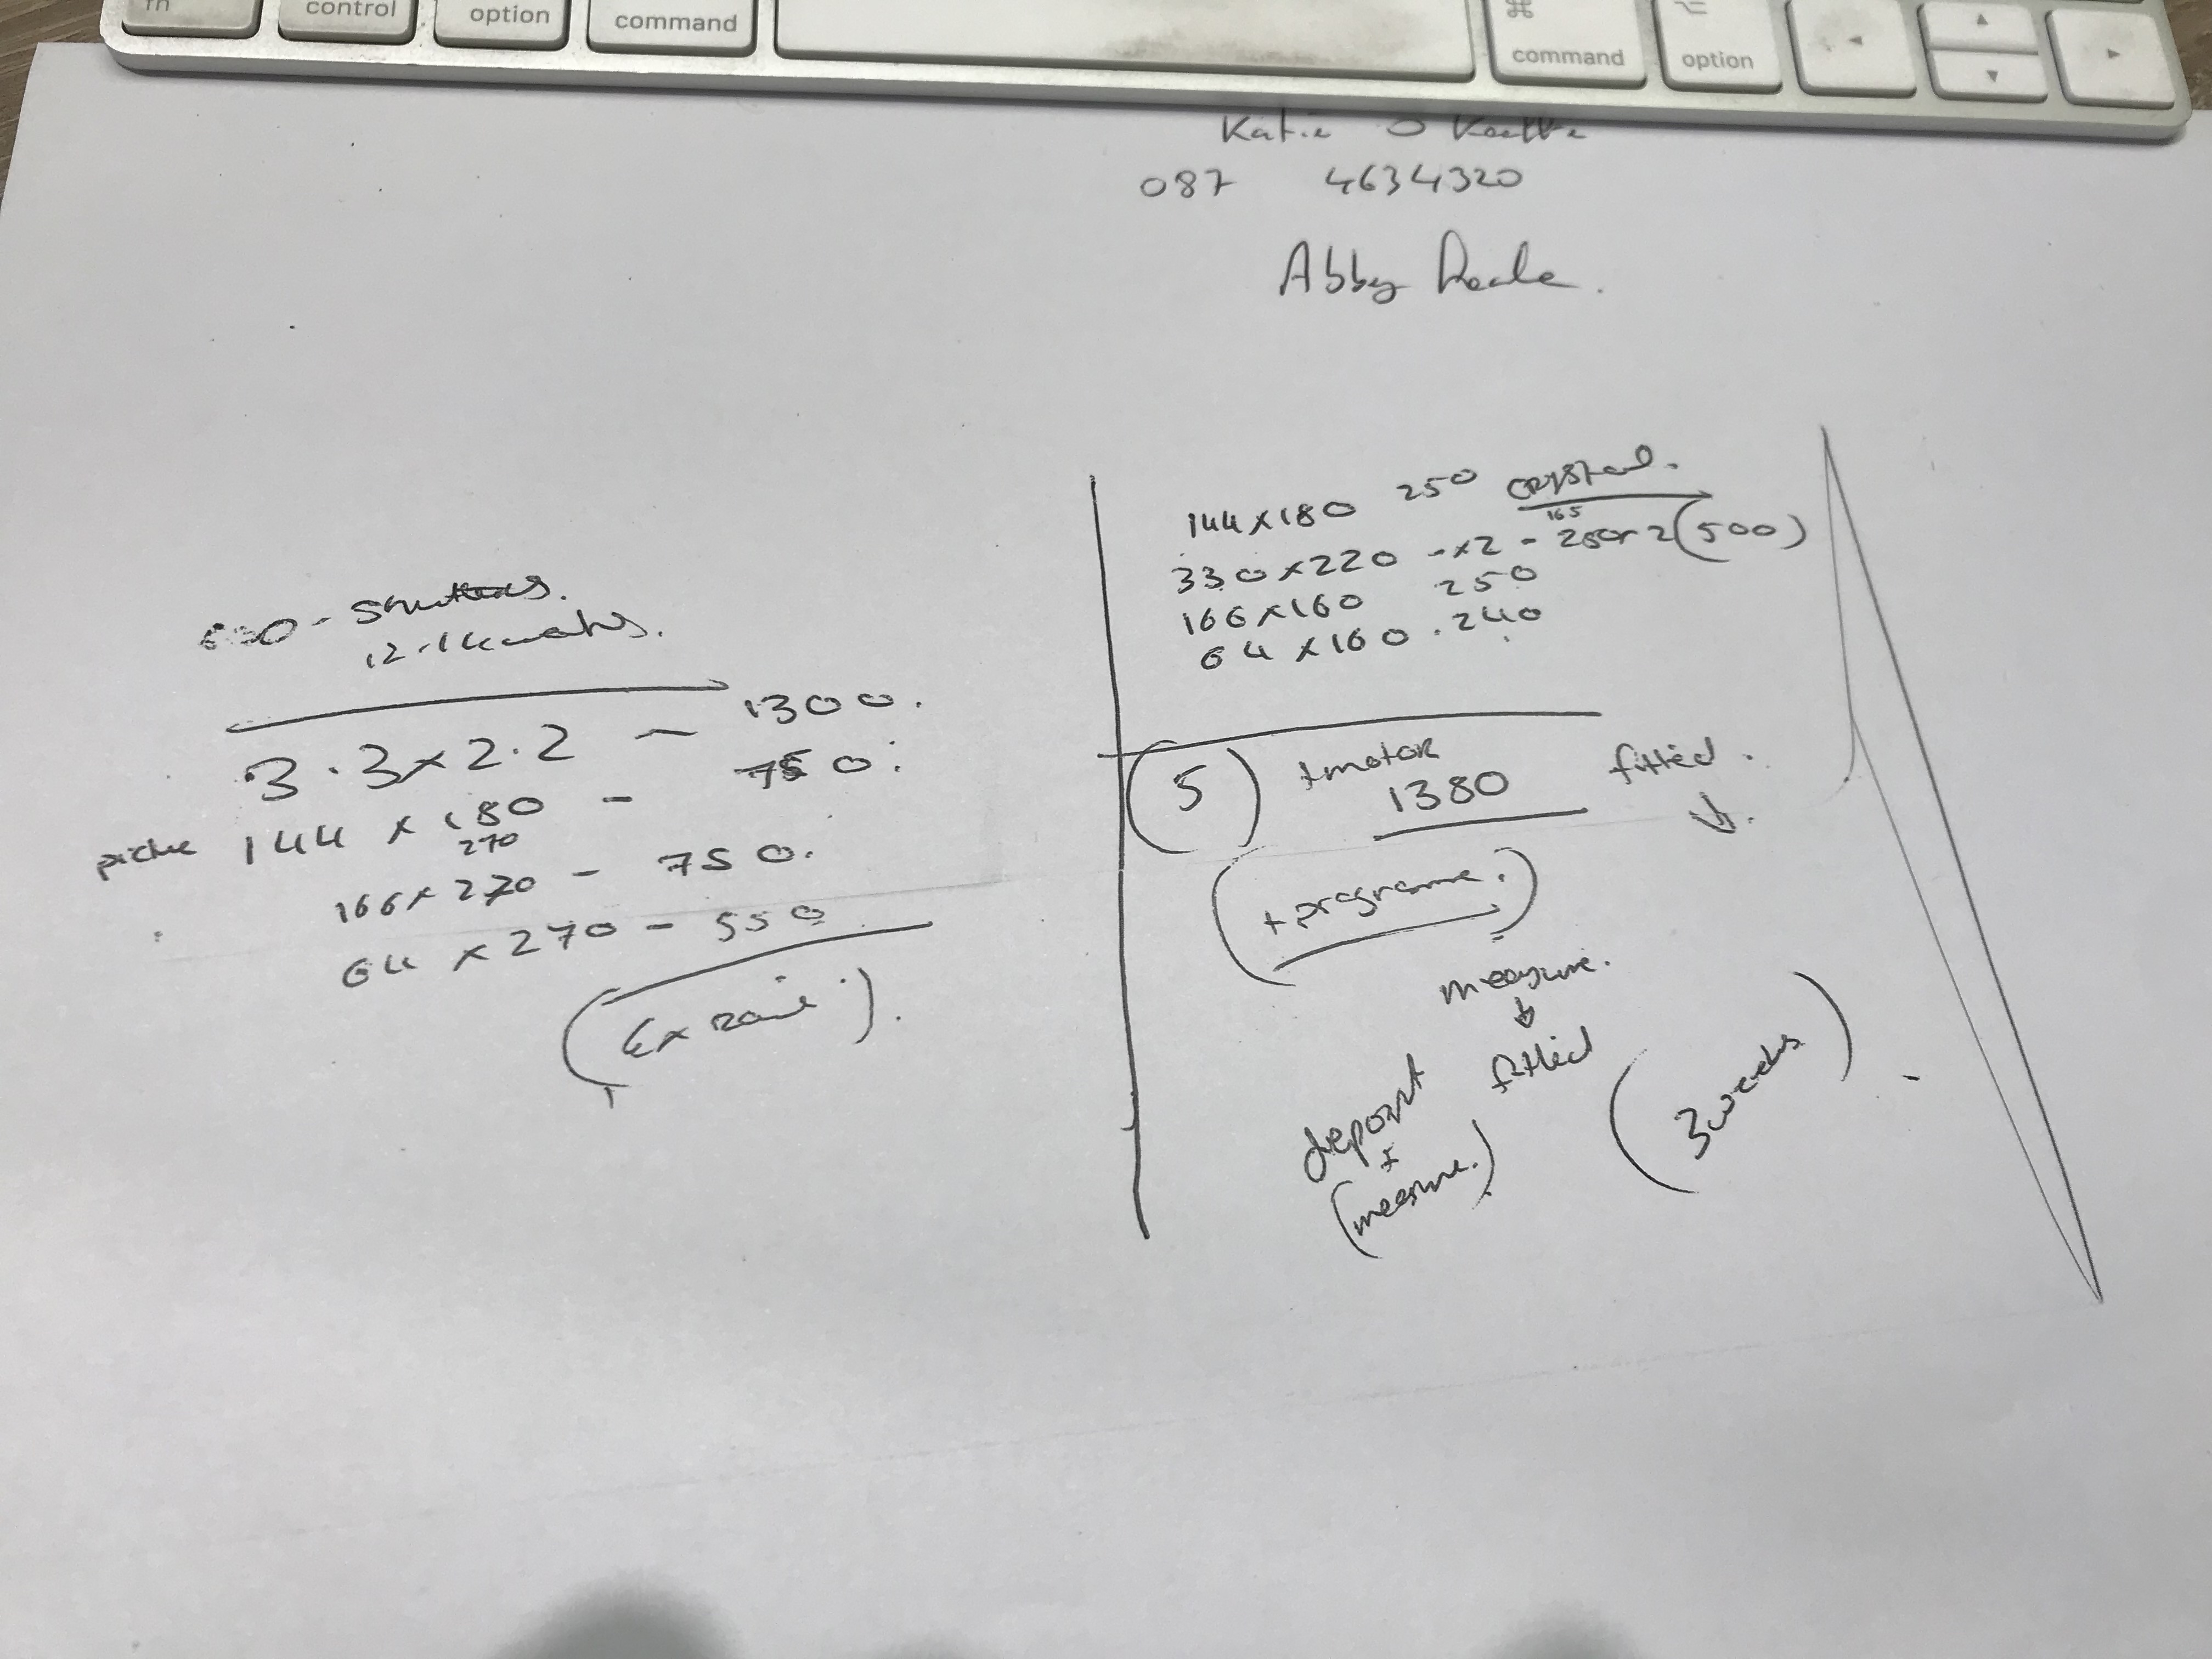 fn control option command ⌘ command ⌥ option ◄ ▲ ▼ ►
Katie O
087 4634320
Abby
144 x 180 250 crystal.
165
330 x 220 - x2 - 250 x 2 (500)
166 x 160 250
64 x 160 . 240
- Shutters.
12-14 weeks.
3.3 x 2.2 - 1300.
144 x 180 - 750.
270
166 x 270 - 750.
64 x 270 - 550
(5) + motor fitted.
1380
(+ programme.)
measure.
fitted
deposit
+
(measure.)
(3 weeks)